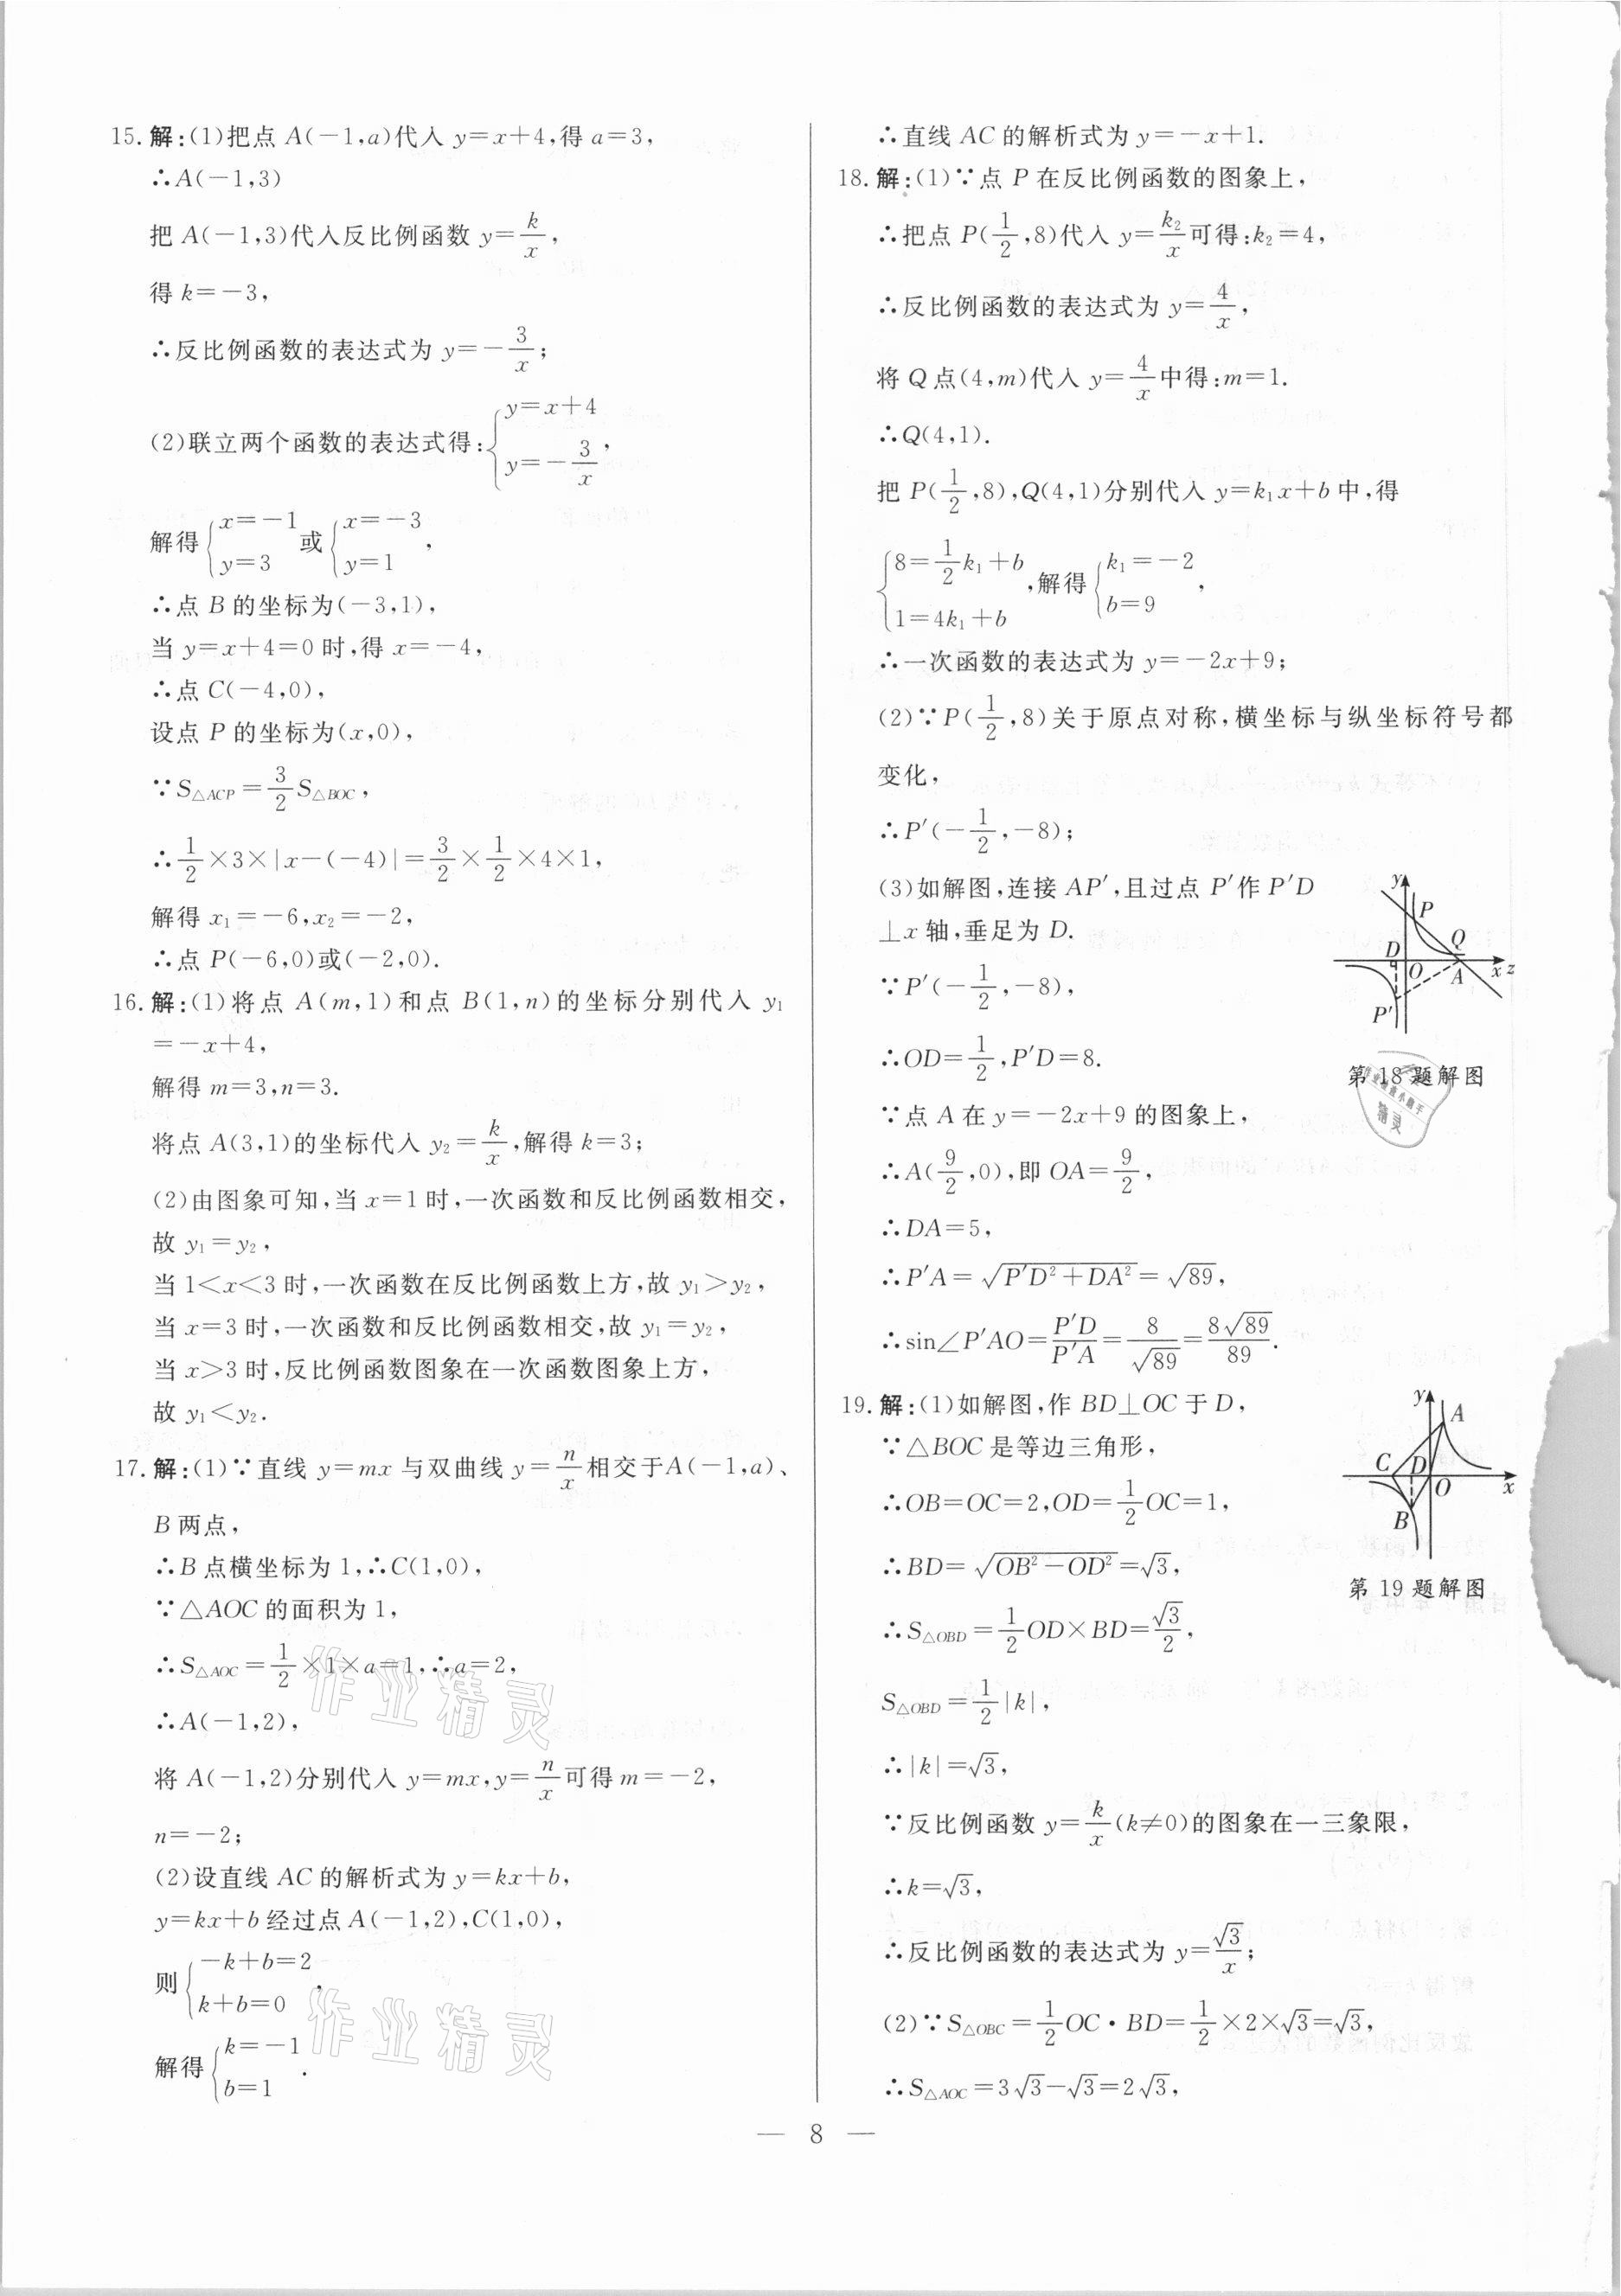 15. 解:(1)把点 A(-1,a)代入 y=x+4,得 a=3,
∴A(-1,3)
把 A(-1,3)代入反比例函数 y=k/x,
得 k=-3,
∴反比例函数的表达式为 y=-3/x;
(2)联立两个函数的表达式得:{y=x+4 y=-3/x,
解得{x=-1 y=3 或{x=-3 y=1,
∴点 B 的坐标为(-3,1),
当 y=x+4=0 时,得 x=-4,
∴点 C(-4,0),
设点 P 的坐标为(x,0),
∵S△ACP=3/2 S△BOC,
∴1/2×3×|x-(-4)|=3/2×1/2×4×1,
解得 x₁=-6,x₂=-2,
∴点 P(-6,0)或(-2,0).
16. 解:(1)将点 A(m,1)和点 B(1,n)的坐标分别代入 y₁
=-x+4,
解得 m=3,n=3.
将点 A(3,1)的坐标代入 y₂=k/x,解得 k=3;
(2)由图象可知,当 x=1 时,一次函数和反比例函数相交,
故 y₁=y₂,
当 1<x<3 时,一次函数在反比例函数上方,故 y₁>y₂,
当 x=3 时,一次函数和反比例函数相交,故 y₁=y₂,
当 x>3 时,反比例函数图象在一次函数图象上方,
故 y₁<y₂.
17. 解:(1)∵直线 y=mx 与双曲线 y=n/x相交于A(-1,a)、
B 两点,
∴B 点横坐标为 1,∴C(1,0),
∵△AOC 的面积为 1,
∴S△AOC=1/2×1×a=1,∴a=2,
∴A(-1,2),
将 A(-1,2)分别代入 y=mx,y=n/x可得 m=-2,
n=-2;
(2)设直线 AC 的解析式为 y=kx+b,
y=kx+b 经过点 A(-1,2),C(1,0),
则{-k+b=2 k+b=0,
解得{k=-1 b=1.
作业精灵
作业精灵
∴直线 AC 的解析式为 y=-x+1.
18. 解:(1)∵点 P 在反比例函数的图象上,
∴把点 P(1/2,8)代入 y=k₂/x可得:k₂=4,
∴反比例函数的表达式为 y=4/x,
将 Q 点(4,m)代入 y=4/x中得:m=1.
∴Q(4,1).
把 P(1/2,8),Q(4,1)分别代入 y=k₁x+b 中,得
{8=1/2 k₁+b 1=4k₁+b,解得{k₁=-2 b=9,
∴一次函数的表达式为 y=-2x+9;
(2)∵P(1/2,8)关于原点对称,横坐标与纵坐标符号都
变化,
∴P′(-1/2,-8);
(3)如解图,连接 AP′,且过点 P′作 P′D
⊥x 轴,垂足为 D.
∵P′(-1/2,-8),
∴OD=1/2,P′D=8.
∵点 A 在 y=-2x+9 的图象上,
∴A(9/2,0),即 OA=9/2,
∴DA=5,
∴P′A=√(P′D²+DA²)=√89,
∴sin∠P′AO=P′D/P′A=8/√89=8√89/89.
y
P
Q
D
O
A
x z
P′
第 18 题解图
作业精灵小助手
精灵
19. 解:(1)如解图,作 BD⊥OC 于 D,
∵△BOC 是等边三角形,
∴OB=OC=2,OD=1/2 OC=1,
∴BD=√(OB²-OD²)=√3,
∴S△OBD=1/2 OD×BD=√3/2,
S△OBD=1/2|k|,
∴|k|=√3,
∵反比例函数 y=k/x(k≠0)的图象在一三象限,
∴k=√3,
∴反比例函数的表达式为 y=√3/x;
(2)∵S△OBC=1/2 OC·BD=1/2×2×√3=√3,
∴S△AOC=3√3-√3=2√3,
y
A
C
D
O
x
B
第 19 题解图
— 8 —